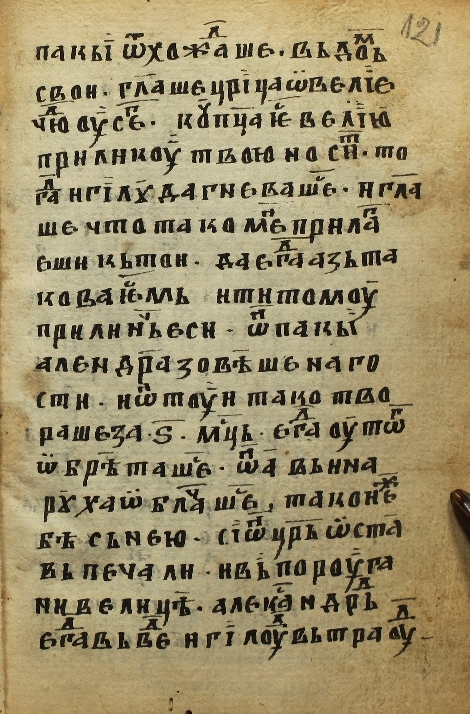 121
пакыи ѿхожⷣаше. вь домⷨь
свои. гл҃аше цр҃іца ѡ велїе
чюⷣ оусеⷫ҇. коупца ѥ велїю
прилику твою носиⷮ. то
гаⷣ нгїлꙋда гневаше. и гл҃а
ше что тако меⷫ прилаⷢ
еши кьтои. да егаⷣ азь та
кова ѥмь и ти томоу
приличьеси. ѿ пакы
алеѯндра зовѣше наго
сти. и ѿтоуⷣи тако тво
раше за ѕ҃. мц҃ь. егаⷣ оу тоⷢ
ѡбрѣташеⷭ. ѿа вьина
рꙋха ѡблачаше, такожⷣе не
бѣ сьнею. сїѿ цр҃ь ѡста
вь печали. и вь пороуга
ни велицѣ. алеѯандрь
егаⷣ вьвеⷣ нгїлоуⷣ вь траоуⷣ